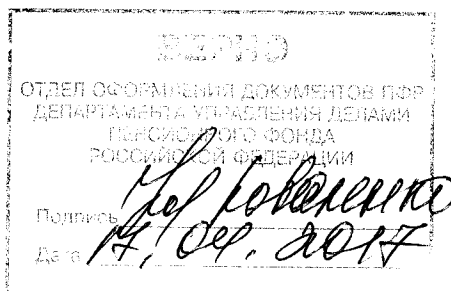 ВЕРНО
ОТДЕЛ ОФОРМЛЕНИЯ ДОКУМЕНТОВ ПФР
ДЕПАРТАМЕНТА УПРАВЛЕНИЯ ДЕЛАМИ
ПЕНСИОННОГО ФОНДА
РОССИЙСКОЙ ФЕДЕРАЦИИ
Подпись Коваленко
Дата 17.04.2017